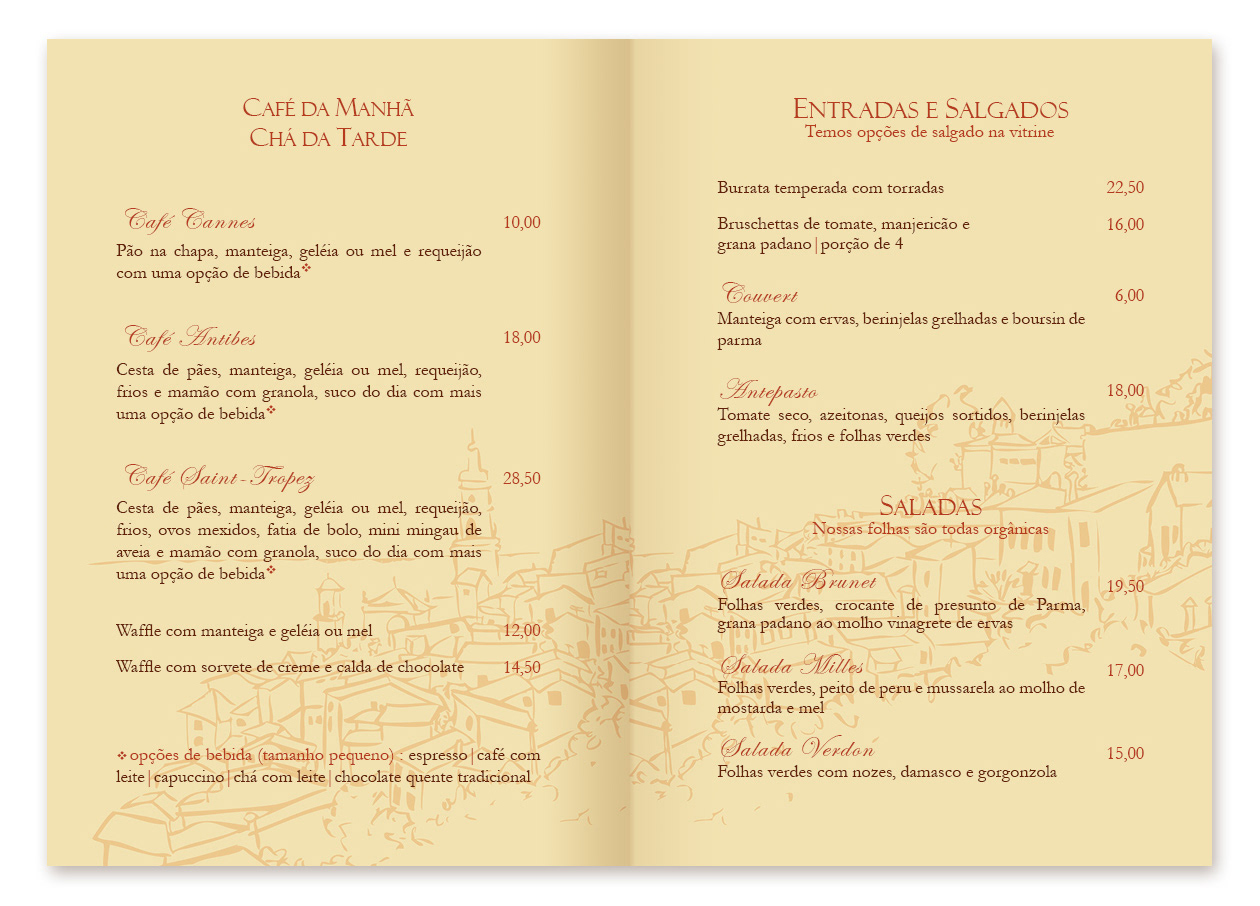 Café da Manhã
Chá da Tarde
Café Cannes 10,00
Pão na chapa, manteiga, geléia ou mel e requeijão
com uma opção de bebida❖
Café Antibes 18,00
Cesta de pães, manteiga, geléia ou mel, requeijão,
frios e mamão com granola, suco do dia com mais
uma opção de bebida❖
Café Saint-Tropez 28,50
Cesta de pães, manteiga, geléia ou mel, requeijão,
frios, ovos mexidos, fatia de bolo, mini mingau de
aveia e mamão com granola, suco do dia com mais
uma opção de bebida❖
Waffle com manteiga e geléia ou mel 12,00
Waffle com sorvete de creme e calda de chocolate 14,50
❖opções de bebida (tamanho pequeno) : espresso|café com
leite|capuccino|chá com leite|chocolate quente tradicional
Entradas e Salgados
Temos opções de salgado na vitrine
Burrata temperada com torradas 22,50
Bruschettas de tomate, manjericão e 16,00
grana padano|porção de 4
Couvert 6,00
Manteiga com ervas, berinjelas grelhadas e boursin de
parma
Antepasto 18,00
Tomate seco, azeitonas, queijos sortidos, berinjelas
grelhadas, frios e folhas verdes
Saladas
Nossas folhas são todas orgânicas
Salada Brunet 19,50
Folhas verdes, crocante de presunto de Parma,
grana padano ao molho vinagrete de ervas
Salada Milles 17,00
Folhas verdes, peito de peru e mussarela ao molho de
mostarda e mel
Salada Verdon 15,00
Folhas verdes com nozes, damasco e gorgonzola